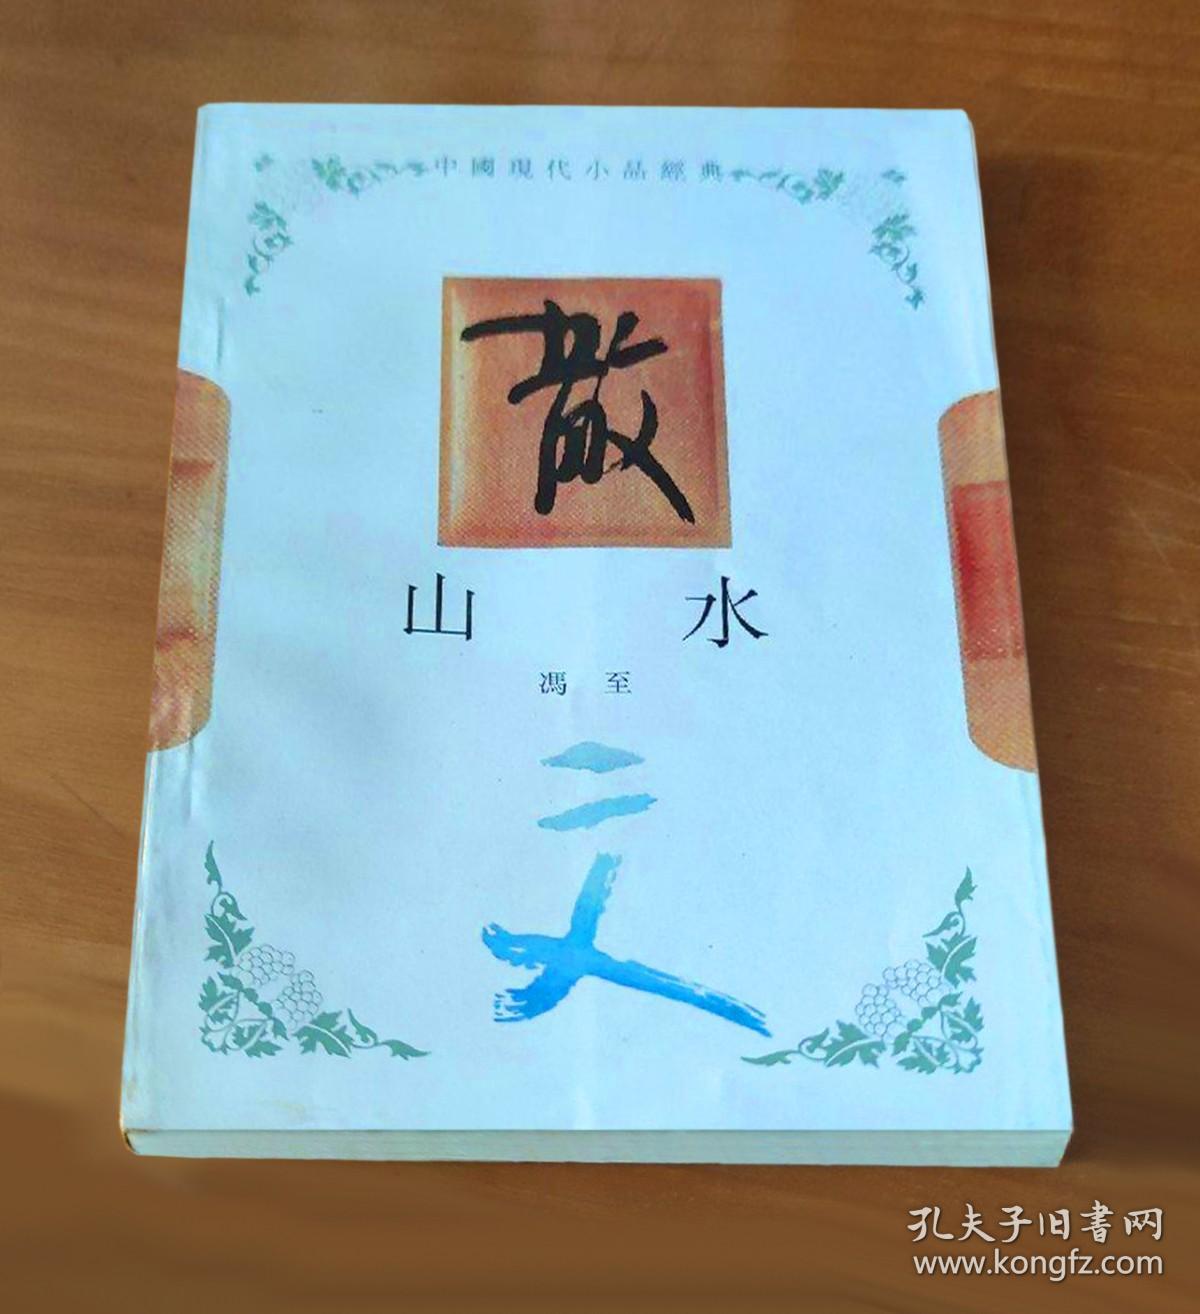 中國現代小品經典
散
山水
馮至
文
孔夫子旧書网
www.kongfz.com